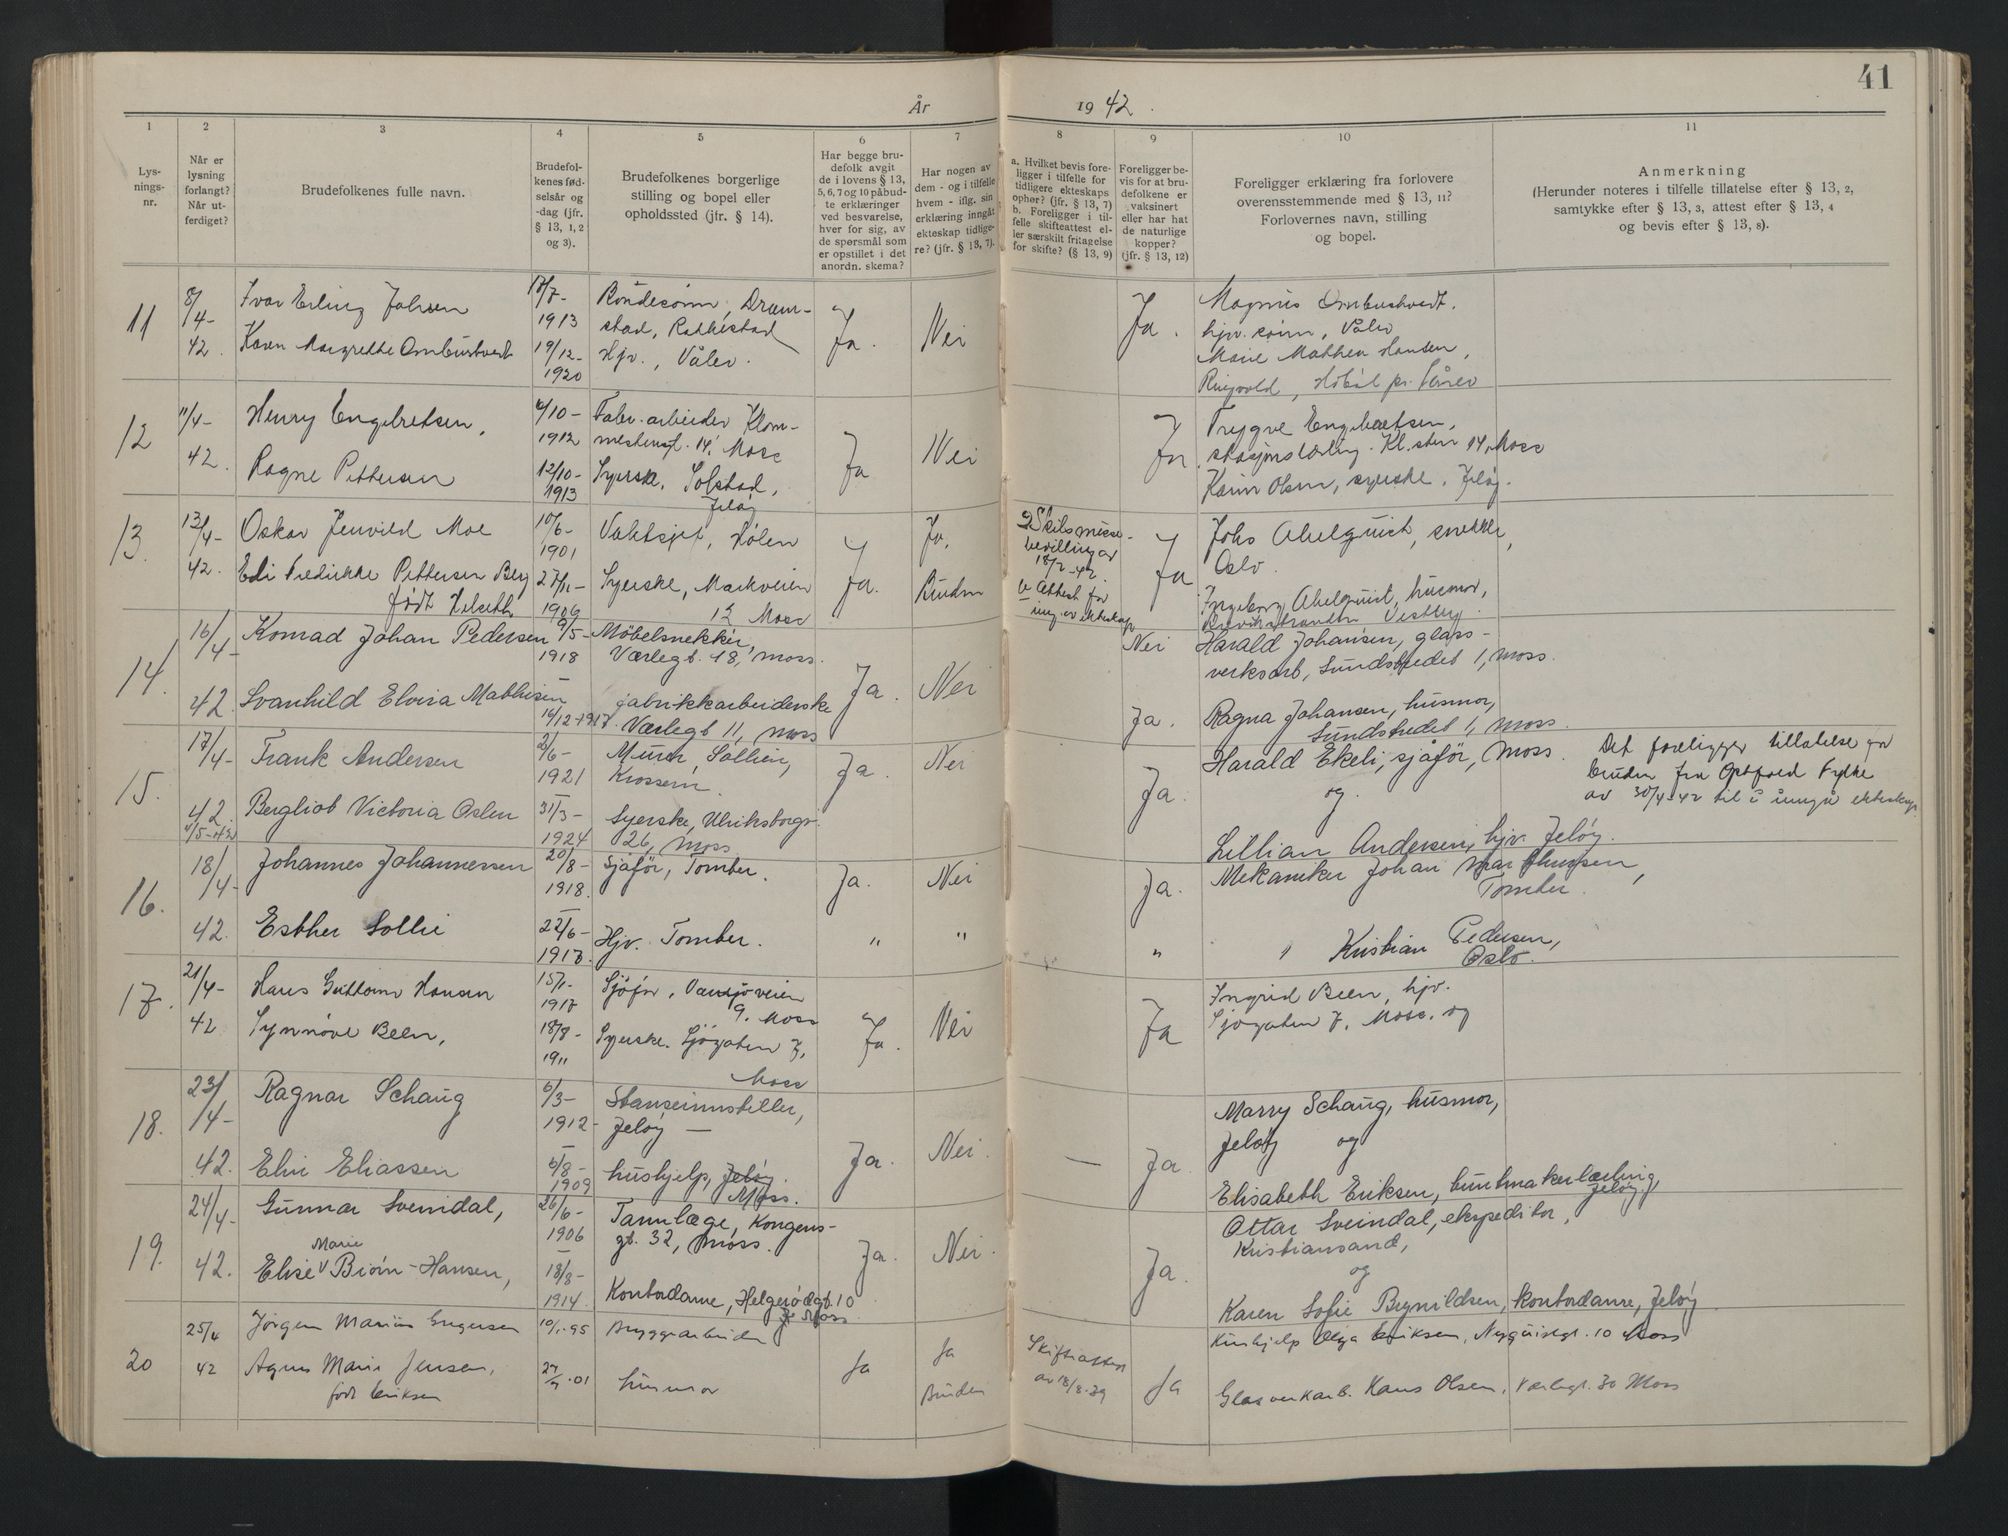 41
År 1942.
1
2
3
4
5
6
7
8
9
10
11
Lysnings-
nr.
Når er
lysning
forlangt?
Når ut-
ferdiget?
Brudefolkenes fulle navn.
Brudefol-
kenes fød-
selsår og
-dag (jfr.
§ 13, 1, 2
og 3).
Brudefolkenes borgerlige
stilling og bopel eller
opholdssted (jfr. § 14).
Har begge bru-
defolk avgit
de i lovens § 13,
5, 6, 7 og 10 påbud-
te erklæringer
ved besvarelse,
hver for sig, av
de spørsmål som
er opstillet i det
anordn. skema?
Har nogen av
dem - og i tilfelle
hvem - iflg. sin
erklæring inngått
ekteskap tidlige-
re? (jfr. § 13, 7).
a. Hvilket bevis fore-
ligger i tilfelle for
tidligere ekteskaps
ophør? (jfr. § 13, 7)
b. Foreligger i til-
felle skifteattest el-
ler særskilt fritagelse
for skifte? (§ 13, 9)
Foreligger be-
vis for at bru-
defolkene er
vaksinert
eller har hat
de naturlige
kopper?
(jfr. § 13, 12)
Foreligger erklæring fra forlovere
overensstemmende med § 13, 11?
Forlovernes navn, stilling
og bopel.
Anmerkning
(Herunder noteres i tilfelle tillatelse efter § 13, 2,
samtykke efter § 13, 3, attest efter § 13, 4
og bevis efter § 13, 8).
11
8/4-
42.
Ivar Erling Johsen
Karen Margrethe Ombustvedt
18/7-
1913
19/12-
1920
Bondesønn, Dram-
stad, Rakkestad
Hjv., Våler.
Ja.
Nei
Ja.
Magnus Ombustvedt.
hjv. sønn, Våler
Marie Mathea Hansen,
Ringvold, Hobøl pr. Våler
12
11/4-
42.
Henry Engebretsen,
Ragne Pettersen
6/10-
1912
12/10-
1913
Fabr. arbeider Klom-
mestensgt. 14, Moss
Syerske, Solstad,
Jeløy
Ja
Nei
Ja
Trygve Engebretsen,
stasjonslærling. Kl.sten 14, Moss
Karin Olsen, syerske, Jeløy.
13.
13/4-
42.
Oskar Jenvild Moe
Edi Fredrikke Pettersen Berg
født Helseth
10/6-
1901
27/11-
1906
Vaktsjef, Hølen
Syerske, Markveien
12 Moss
Ja.
Ja.
Bruden
a Skilsmisse-
bevilling av
18/2-42.
b Attest for
inng. av ekteskap
Ja
Johs Abelquist, snekker,
Oslo.
Ingeborg Abelquist, husmor,
Brevikstranden Vestby.
14.
16/4-
42.
Konrad Johan Pedersen
Svanhild Elvira Mathisen
9/5-
1918
16/12-1917
Møbelsnekker,
Værlegt. 18, Moss.
fabrikkarbeiderske
Værlegt 11, Moss
Ja.
Nei
Nei
Ja.
Harald Johansen, glass-
verksarb, Sundstredet 1, Moss.
Ragna Johansen, husmor,
Sundstredet 1, Moss.
15.
17/4-
42.
4/5-42
Frank Andersen
Bergliot Victoria Oslen
2/6-
1921
31/3-
1924
Murer, Sollien,
Krossern.
Syerske, Ulriksborgv.
26, Moss
Ja.
Nei
Ja.
Harald Ekeli, sjåfør, Moss.
og
Lillian Andersen, hjv. Jeløy.
Det foreligger tillatelse for
bruden fra Østfold Fylke
av 30/4-42 til å inngå ekteskap
16.
18/4-
42.
Johannes Johannessen
Esther Sollie
20/8-
1918.
22/6-
1917.
Sjåfør, Tomber.
Hjv. Tomber.
Ja.
"
Nei
"
Ja.
"
Mekaniker Johan Marthinsen,
Tomber.
" Kristian Pedersen,
Oslo.
17.
21/4-
42
Hans Guttorm Hansen
Synnøve Been,
15/1-
1917
18/8-
1911
Sjåfør, Vansjøveien
9. Moss
Syerske. Sjøgaten 7,
Moss
Ja.
Nei
Ja
Ingrid Been, hjv.
Sjøgaten 7, Moss. og
18.
23/4-
42.
Ragnar Schaug
Elvi Eliassen
6/3-
1912-
6/8-
1909
Stanseinnstiller,
Jeløy —
hushjelp, Jeløy.
Moss.
Ja.
Nei.
—
Ja.
Marry Schaug, husmor,
Jeløy og
Elisabeth Eriksen, buntmakerlærling,
Jeløy
19.
24/4-
42.
Gunnar Sveindal,
Marie
Elise Bjørn-Hansen,
26/6-
1906
18/8-
1914.
Tannlæge, Kongens-
gt. 32, Moss.
Kontordame, Helgerødgt. 10
Moss.
Ja.
Nei.
Ja.
Ottar Sveindal, ekspeditør,
Kristiansand,
og
Karen Sofie Brynildsen, kontordame, Jeløy.
20
25/4
42
Jørgen Marius Gregersen
Agnes Marie Jensen,
født Eriksen
10/1-95
27/7-01
Bryggearbeider
husmor
Ja
Ja
Bruden
Skifteattest
av 18/8-39
Ja
Hushjelp Olga Eriksen, Nyquistgt. 10 Moss
Glassverkarb. Hans Olsen, Værlegt. 30 Moss